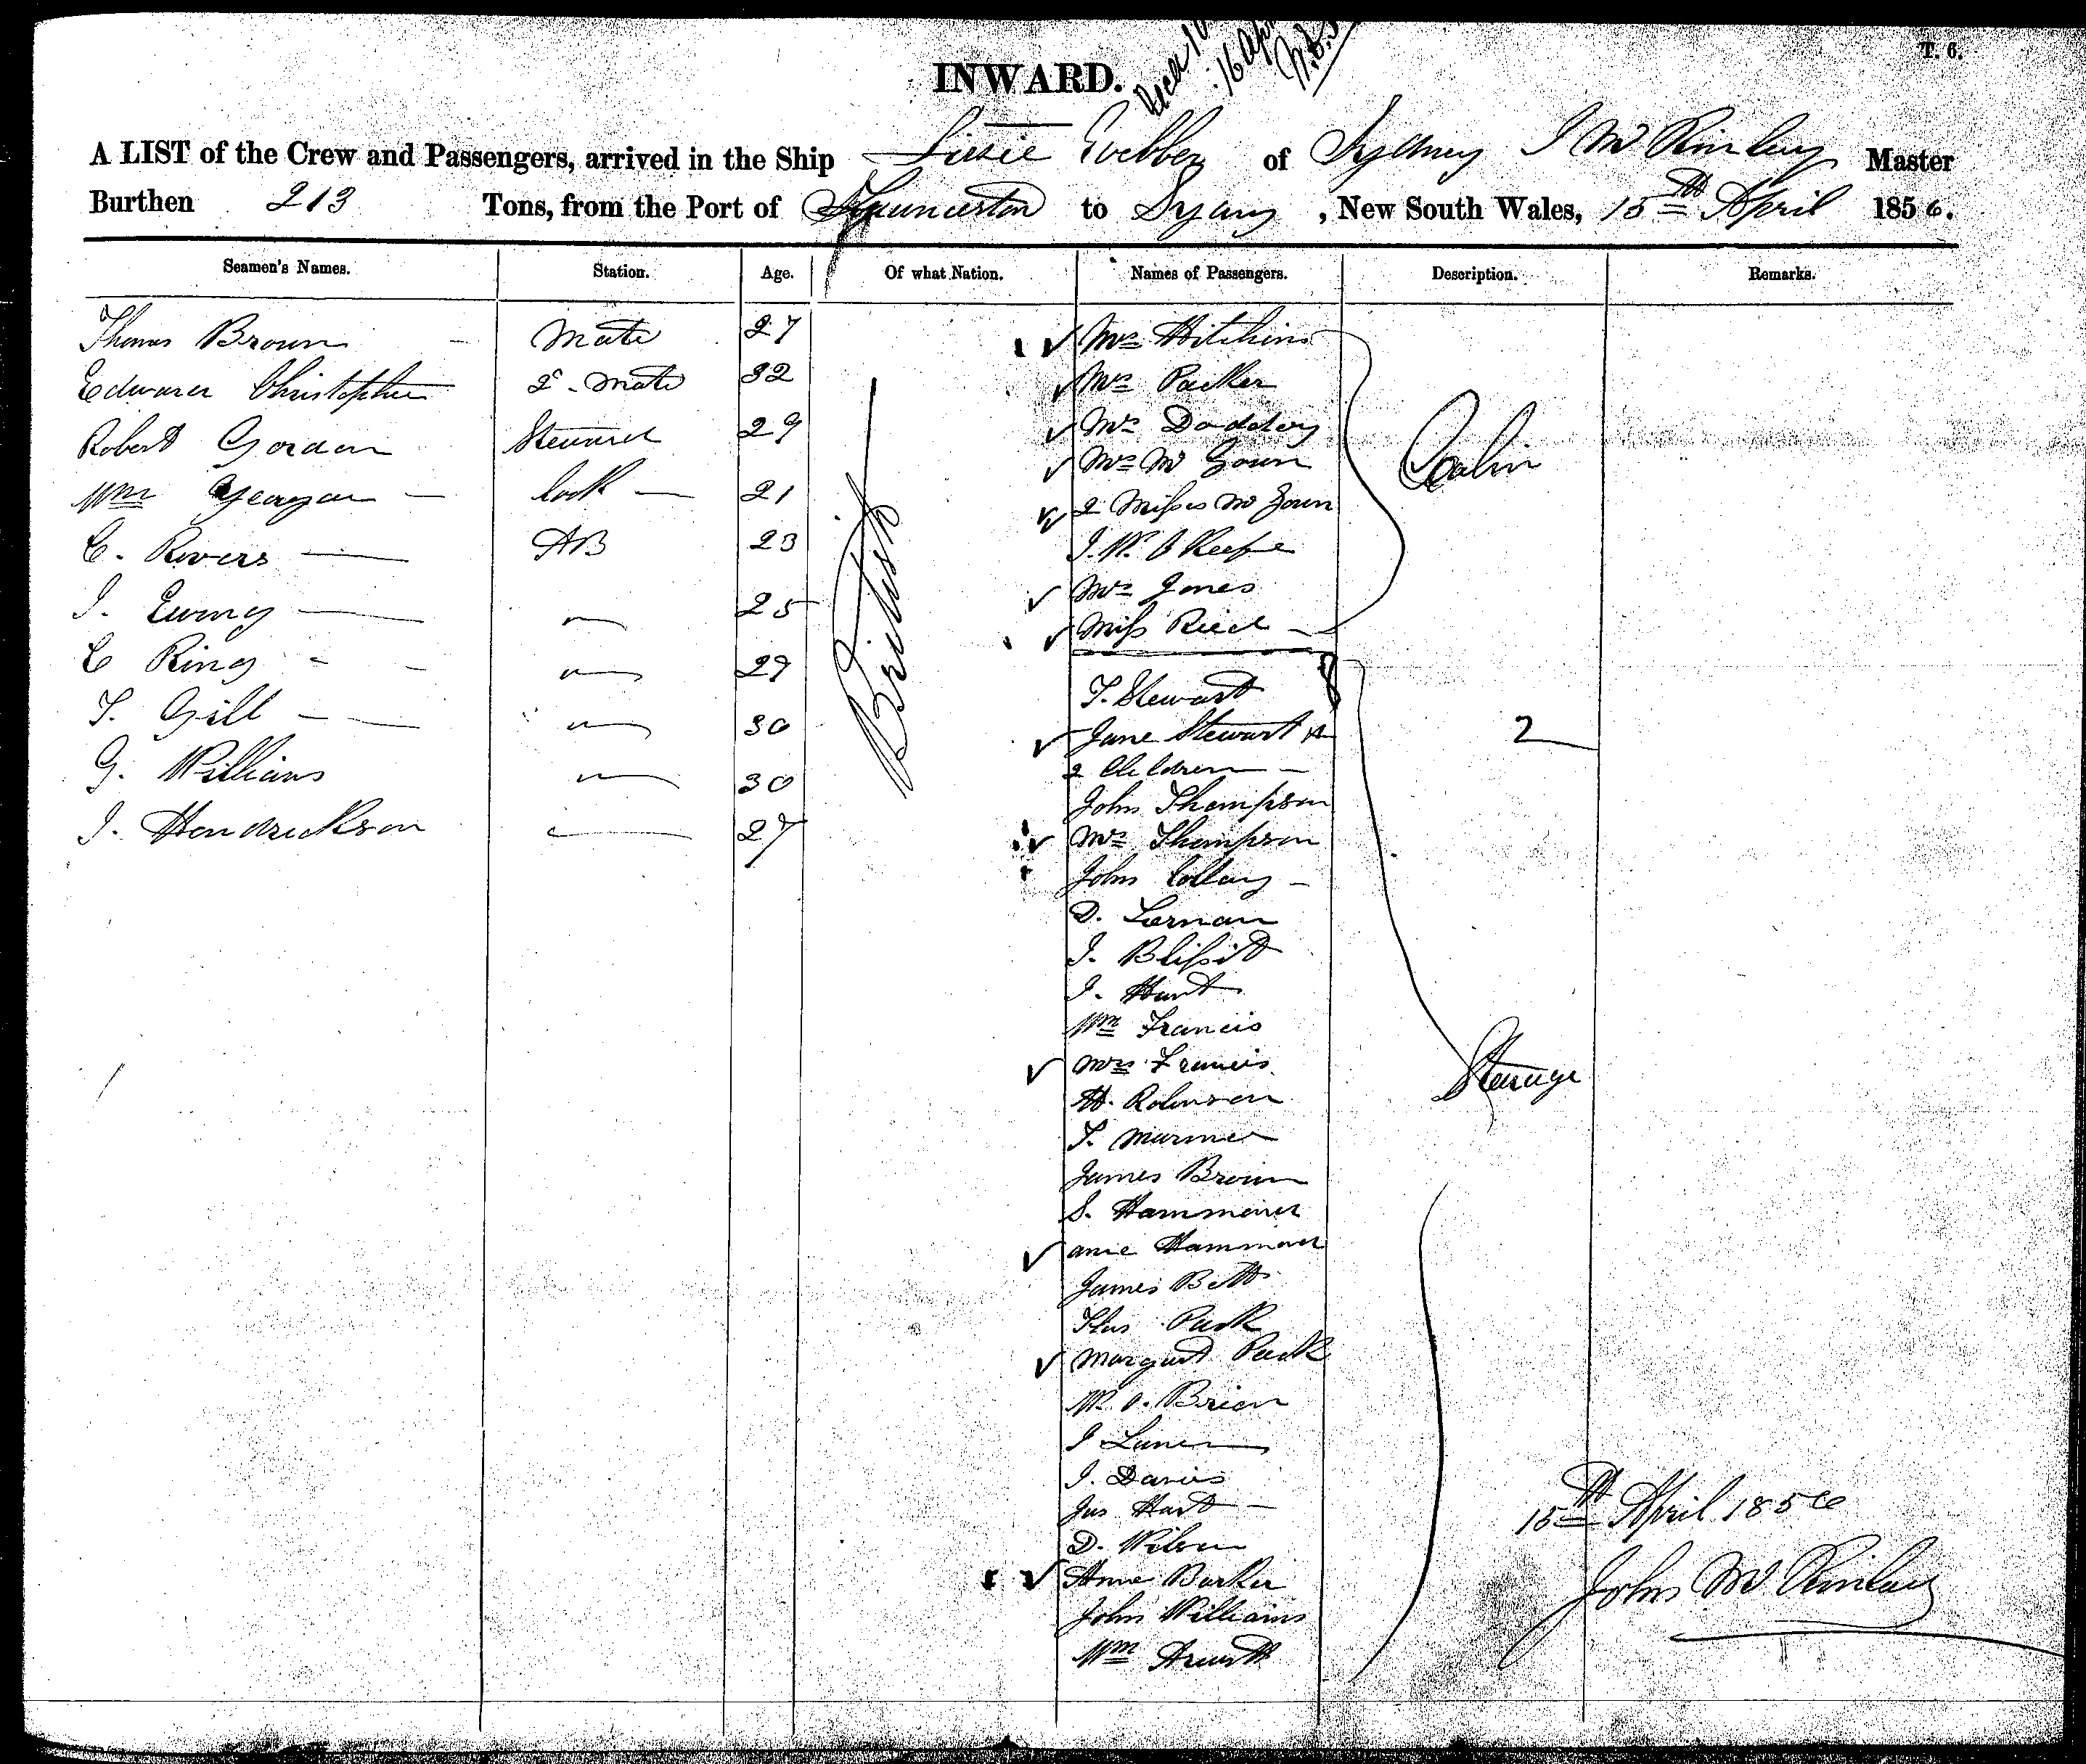 T. 6.
16 Apr
INWARD.
A LIST of the Crew and Passengers, arrived in the Ship Lizzie Webber of Sydney J McKinlay Master
Burthen 213 Tons, from the Port of Launceston to Sydney, New South Wales, 15th April 1856.
Seamen's Names. Station. Age. Of what Nation. Names of Passengers. Description. Remarks.
Thomas Brown Mate 27
Edward Christopher 2d Mate 32
Robert Gordon Steward 29
Wm Cook 21
C. Rivers AB 23
J. Ewing " 25
C Ring " 29
T. Gill " 30
G. Williams " 30
J. Hendrickson " 27
British
Mrs Hitchins
Mrs Packer
Mrs Doddery
Mrs Mc Gown
2 Misses Mc Gown
J. W. O Keefe
Mrs Jones
Miss Reed
Cabin
T. Stewart
Jane Stewart &
2 Children
2
John Thompson
Mrs Thompson
John
D.
J. Blissit
J. Hunt
Wm Francis
Mrs Francis
H. Robinson
T.
James Brown
S.
James Bett
Thos Pack
Margaret Pack
W. O. Brien
J
J. Davis
Jas Hart
D. Wilson
Anne Barker
John Williams
Wm
Steerage
15th April 1856
John McKinlay